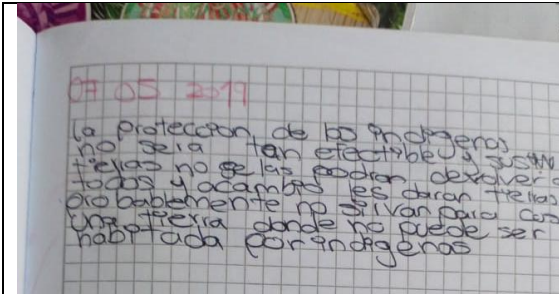 07 05 2019
la proteccion de los indigenas
no seria tan efectible y sus
tierras no se las podran devolver a
todos y acambio les daran tierras
probablemente no sirvan para
una tierra donde no puede ser
habitada por indigenas